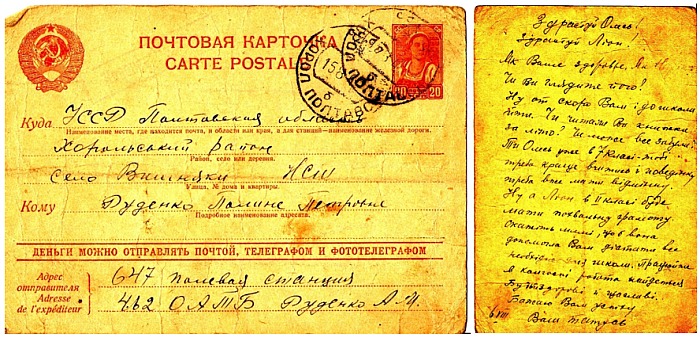 ПОЧТОВАЯ КАРТОЧКА
CARTE POSTALE
20 20
ХОРОЛ
ПОЛТАВС
Куда УССР Полтавская область
Наименование места, где находится почта, и области или края, а для станций—наименование железной дороги.
Хорольський район
Район, село или деревня.
село Вишняки НСШ
Улица, № дома и квартиры.
Кому Руденко Полине Петровне
Подробное наименование адресата.
ДЕНЬГИ МОЖНО ОТПРАВЛЯТЬ ПОЧТОЙ, ТЕЛЕГРАФОМ И ФОТОТЕЛЕГРАФОМ
Адрес отправителя
Adresse de l'expéditeur
647 полевая станция
462 ОАТБ Руденко А.М.
Здрастуй Олесь!
Здрастуй Льоп!
Як Ваше здоровье.
Чи Ви глядите його?
Ну от скоро Вам і до школи
йти. Чи читали Ви книжки
за літо? Чи може все забули.
Ти Олесь уже в 7 класі тобі
треба краще вчитись і поведінку
треба вже мати відмінну.
Ну а в II класі буде
мати похвальну грамоту
скажіть мамі щоб вона
допомогла Вам дістати все
необхідне для школи.
в колгоспі робота
Будьте здорові і щасливі
Бажаю Вам успіху
6/VIII Ваш Татусь